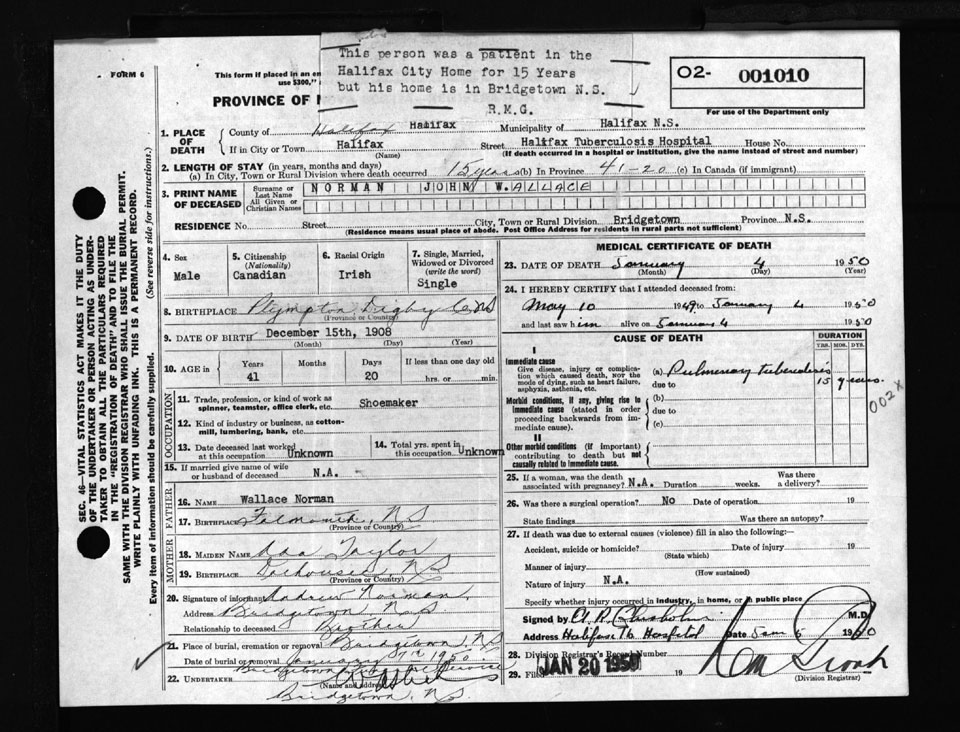 This person was a patient in the
Halifax City Home for 15 Years
but his home is in Bridgetown N.S.
R.M.G.
FORM 6
This form if placed in an en
use $300,"
PROVINCE OF
O2- 001010
For use of the Department only
1. PLACE OF DEATH
County of Halifax Halifax Municipality of Halifax N.S.
If in City or Town Halifax Street Halifax Tuberculosis Hospital House No.
(Name) (If death occurred in a hospital or institution, give the name instead of street and number)
2. LENGTH OF STAY (in years, months and days)
(a) In City, Town or Rural Division where death occurred 15 years (b) In Province 41-20 (c) In Canada (if immigrant)
3. PRINT NAME OF DECEASED
Surname or Last Name NORMAN JOHN WALLACE
All Given or Christian Names
RESIDENCE No. Street City, Town or Rural Division Bridgetown Province N.S.
(Residence means usual place of abode. Post Office Address for residents in rural parts not sufficient)
4. Sex Male
5. Citizenship (Nationality) Canadian
6. Racial Origin Irish
7. Single, Married, Widowed or Divorced (write the word) Single
8. BIRTHPLACE Plympton Digby Co NS
(Province or Country)
9. DATE OF BIRTH December 15th, 1908
(Month) (Day) (Year)
10. AGE in Years 41 Months Days 20 If less than one day old hrs. or min.
OCCUPATION
11. Trade, profession, or kind of work as spinner, teamster, office clerk, etc. Shoemaker
12. Kind of industry or business, as cotton-mill, lumbering, bank, etc.
13. Date deceased last worked at this occupation Unknown
14. Total yrs. spent in this occupation Unknown
15. If married give name of wife or husband of deceased N.A.
FATHER
16. Name Wallace Norman
17. Birthplace Falmouth NS
(Province or Country)
MOTHER
18. Maiden Name Ada Taylor
19. Birthplace NS
(Province or Country)
20. Signature of informant Andrew Norman
Address Bridgetown N.S
Relationship to deceased Brother
21. Place of burial, cremation or removal Bridgetown, NS
Date of burial or removal January 7th 1950
22. UNDERTAKER
(Name and address)
Bridgetown, N.S.
MEDICAL CERTIFICATE OF DEATH
23. DATE OF DEATH January 4 1950
(Month) (Day) (Year)
24. I HEREBY CERTIFY that I attended deceased from:
May 10 1949 to January 4 1950
and last saw him alive on January 4 1950
CAUSE OF DEATH
DURATION
YRS. MOS. DYS.
I
Immediate cause
Give disease, injury or complication which caused death, NOT the mode of dying, such as heart failure, asphyxia, asthenia, etc.
(a) Pulmonary tuberculosis
due to 15 years.
Morbid conditions, if any, giving rise to immediate cause (stated in order proceeding backwards from immediate cause).
(b)
due to
(c)
002 x
II
Other morbid conditions (if important) contributing to death but not causally related to immediate cause.
25. If a woman, was the death associated with pregnancy? N.A. Duration weeks. Was there a delivery?
26. Was there a surgical operation? No Date of operation 19
State findings Was there an autopsy?
27. If death was due to external causes (violence) fill in also the following:—
Accident, suicide or homicide? Date of injury 19
(State which)
Manner of injury
(How sustained)
Nature of injury N.A.
Specify whether injury occurred in industry, in home, or in public place
Signed by A. R. Chisholm M.D.
Address Halifax Tb Hospital Date Jan 5 1950
28. Division Registrar's Record Number
29. Filed JAN 20 1950 19
(Division Registrar)
SEC. 46—VITAL STATISTICS ACT MAKES IT THE DUTY
OF THE UNDERTAKER OR PERSON ACTING AS UNDER-
TAKER TO OBTAIN ALL THE PARTICULARS REQUIRED
IN THE "REGISTRATION OF DEATH" AND TO FILE THE
SAME WITH THE DIVISION REGISTRAR WHO SHALL ISSUE THE BURIAL PERMIT.
WRITE PLAINLY WITH UNFADING INK. THIS IS A PERMANENT RECORD.
Every item of information should be carefully supplied. (See reverse side for instructions.)